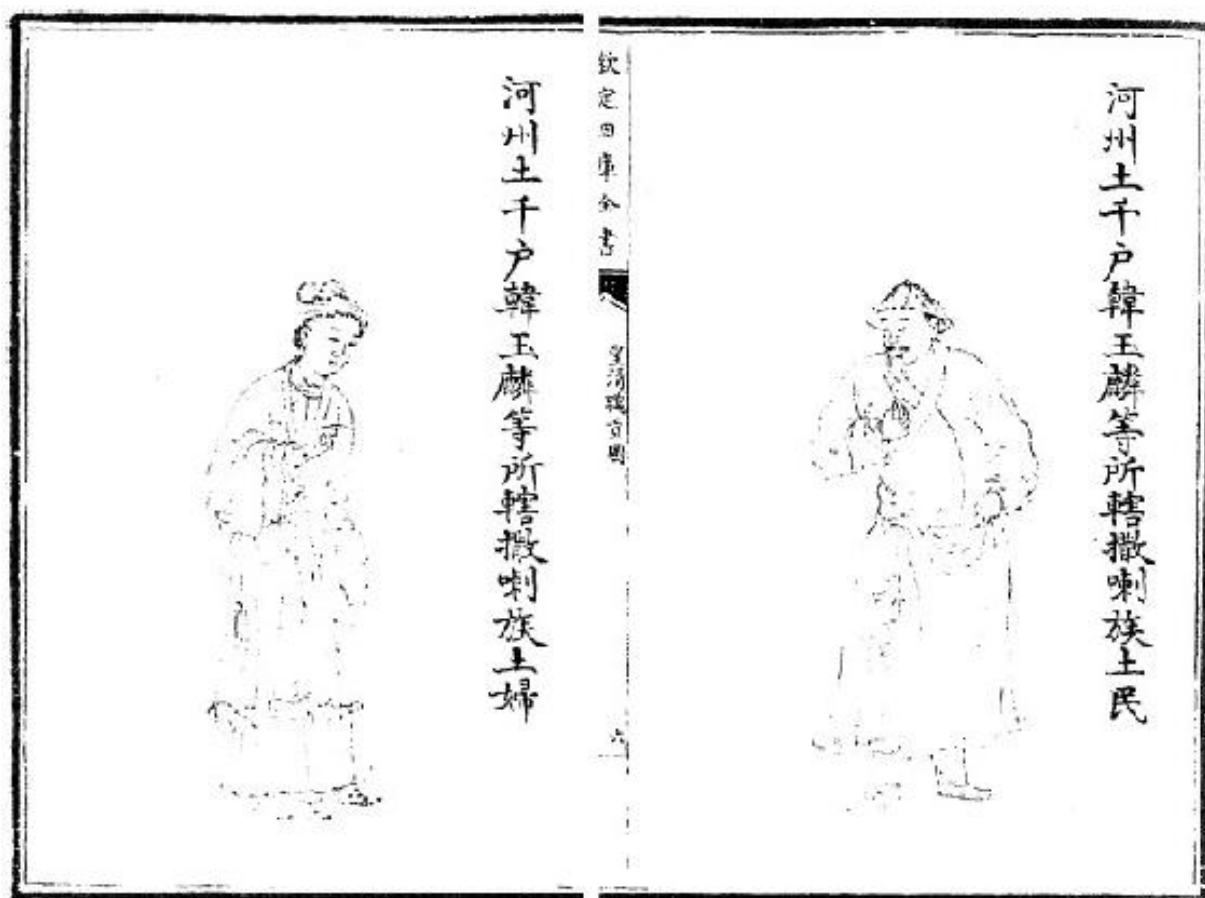 河州土千户韓玉麟等所轄撒喇族土民
欽定四庫全書
皇清職貢圖
六
河州土千户韓玉麟等所轄撒喇族土婦